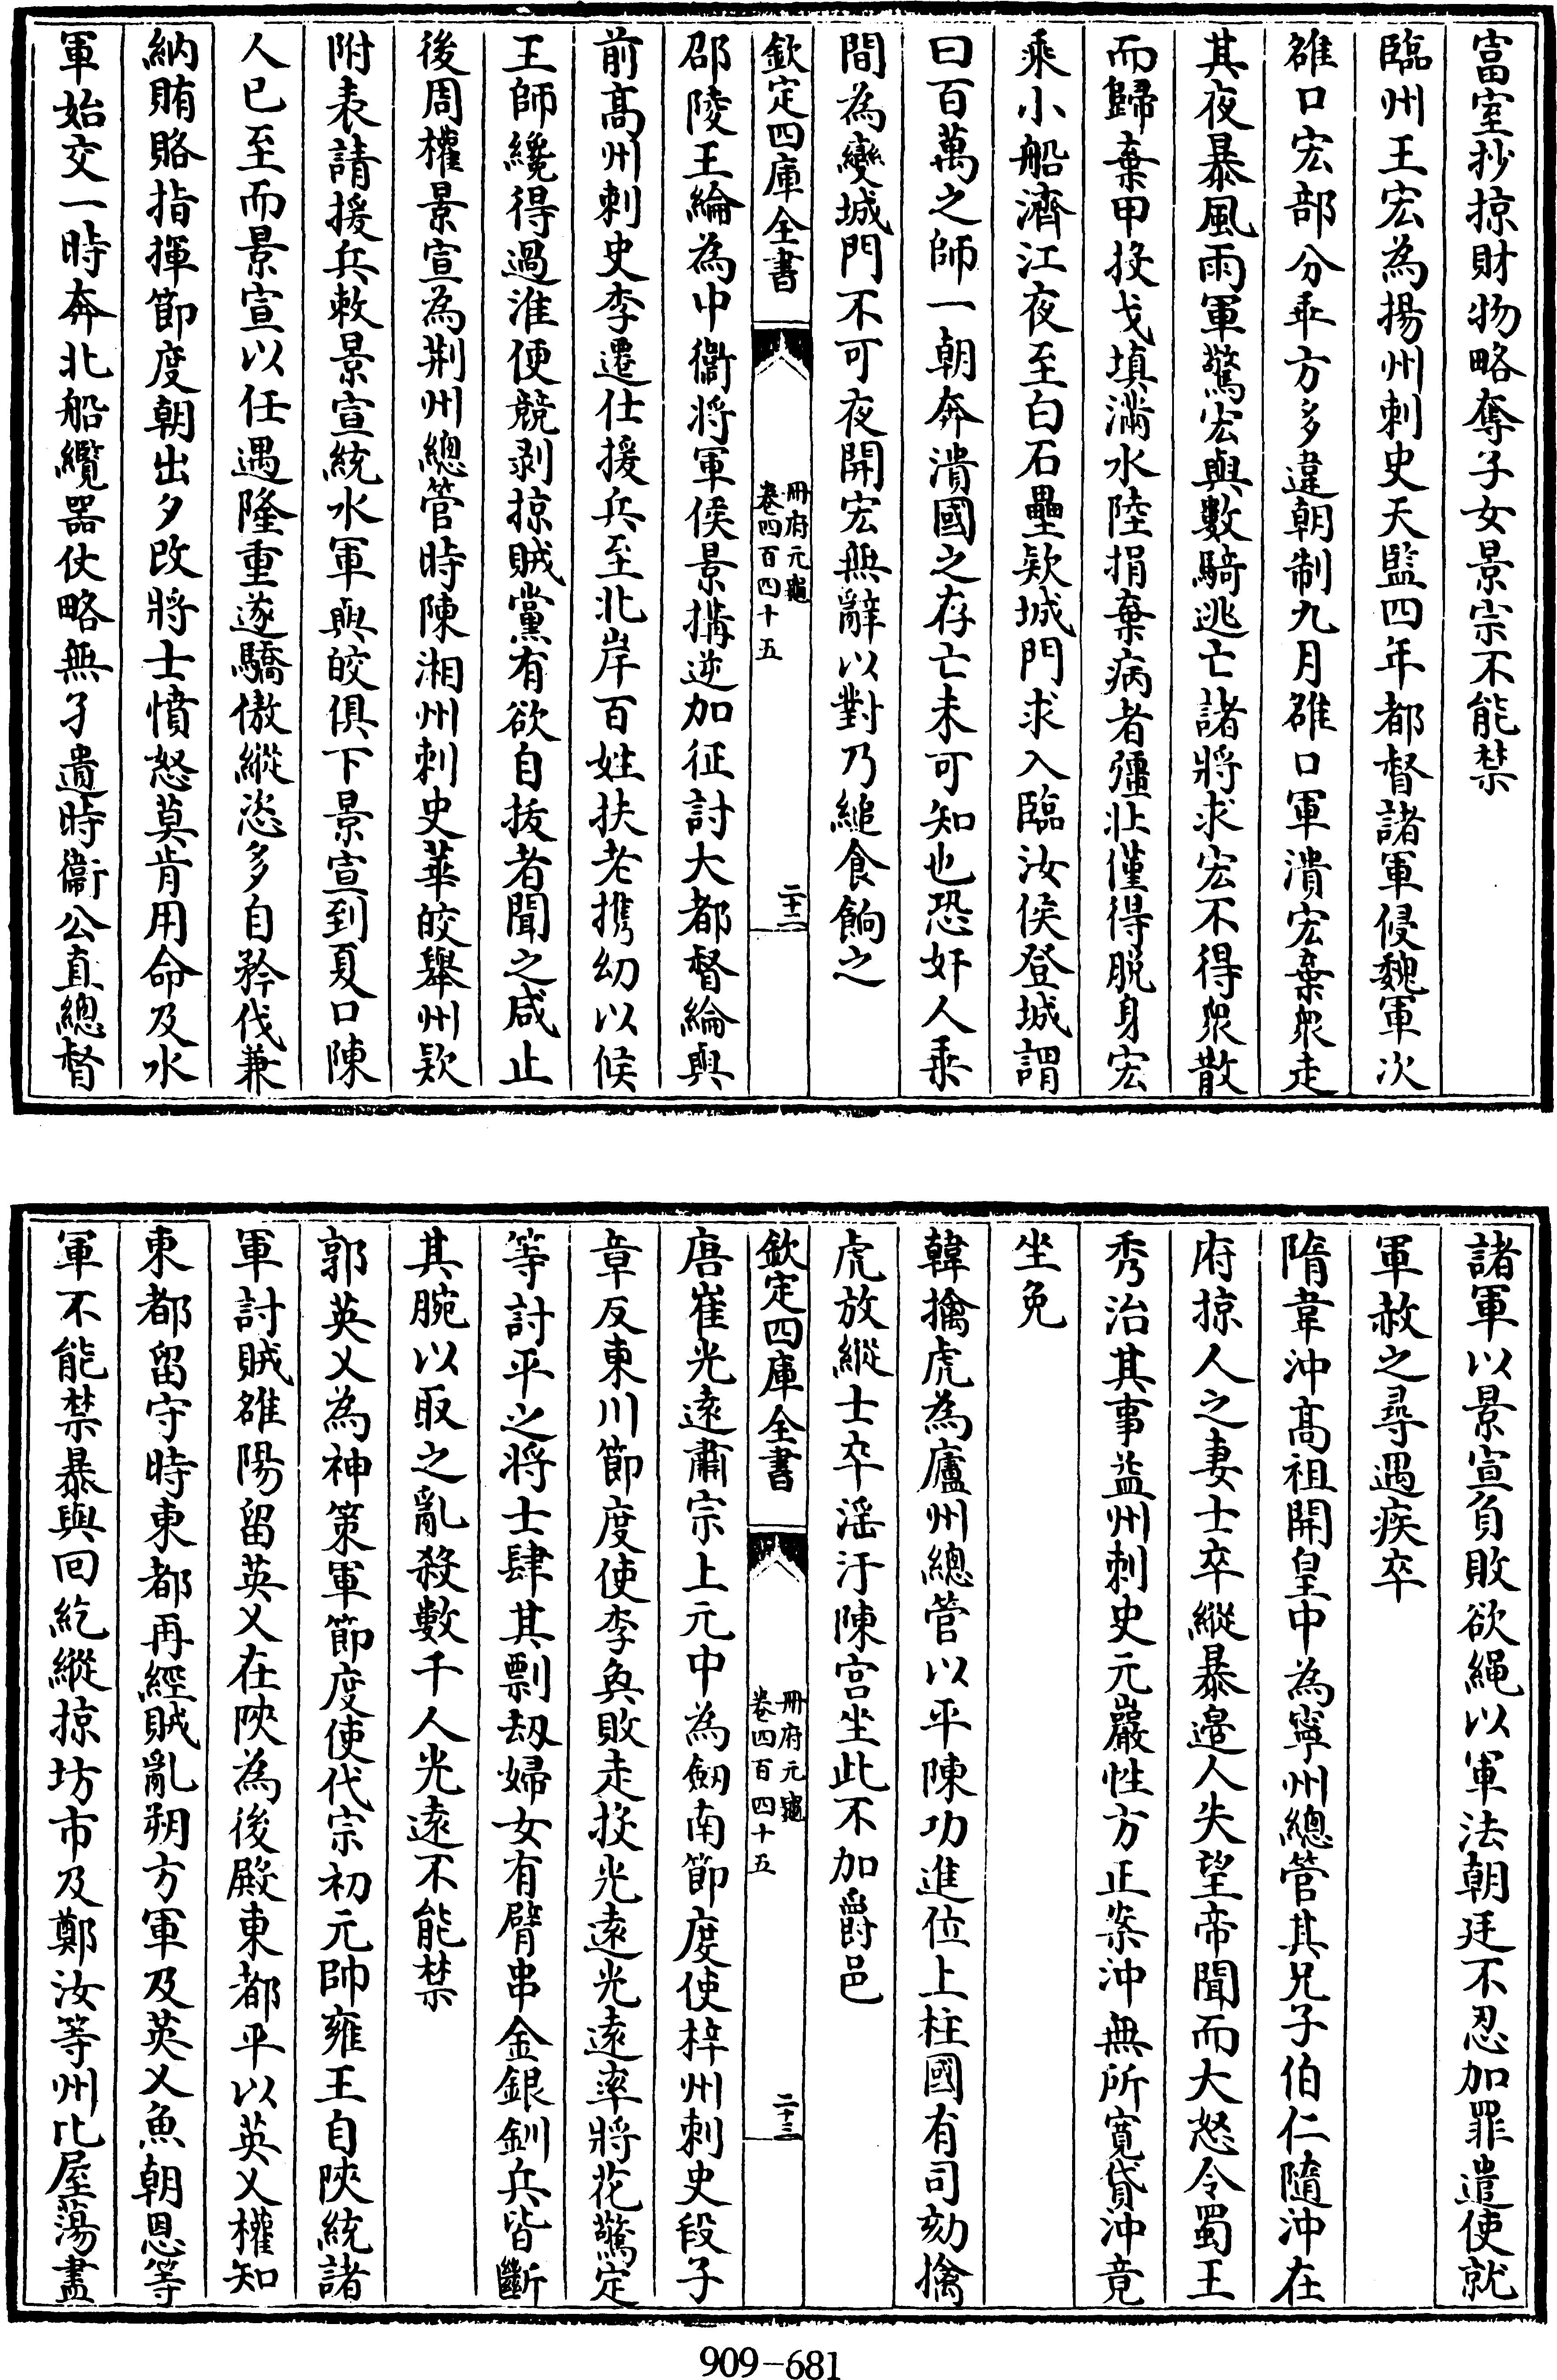 富室抄掠財物略奪子女景宗不能禁
臨州王宏為揚州刺史天監四年都督諸軍侵魏軍次
雒口宏部分乖方多違朝制九月雒口軍潰宏棄衆走
其夜暴風雨軍驚宏與數騎逃亡諸將求宏不得衆散
而歸棄甲投戈填滿水陸捐棄病者彊壯僅得脱身宏
乘小船濟江夜至白石壘欵城門求入臨汝侯登城謂
曰百萬之師一朝奔潰國之存亡未可知也恐奸人乘
間為變城門不可夜開宏無辭以對乃縋食餉之
欽定四庫全書
冊府元龜
卷四百四十五
二十二
邵陵王綸為中衛將軍侯景搆逆加征討大都督綸與
前高州刺史李遷仕援兵至北岸百姓扶老携幼以候
王師纔得過淮便競剥掠賊黨有欲自拔者聞之咸止
後周權景宣為荆州總管時陳湘州刺史華皎舉州欵
附表請援兵敕景宣統水軍與皎俱下景宣到夏口陳
人已至而景宣以任遇隆重遂驕傲縱恣多自矜伐兼
納賄賂指揮節度朝出夕改將士憤怒莫肯用命及水
軍始交一時奔北船艦器仗略無孑遺時衞公直總督
諸軍以景宣負敗欲繩以軍法朝廷不忍加罪遣使就
軍赦之尋遇疾卒
隋韋沖高祖開皇中為寧州總管其兄子伯仁隨沖在
府掠人之妻士卒縱暴邉人失望帝聞而大怒令蜀王
秀治其事益州刺史元巖性方正案沖無所寬貸沖竟
坐免
韓擒虎為廬州總管以平陳功進位上柱國有司劾擒
虎放縱士卒滛汙陳宫坐此不加爵邑
欽定四庫全書
冊府元龜
卷四百四十五
二十三
唐崔光遠肅宗上元中為劒南節度使梓州刺史段子
章反東川節度使李奐敗走投光遠光遠率將花驚定
等討平之將士肆其剽刼婦女有臂串金銀釧兵皆斷
其腕以取之亂殺數千人光遠不能禁
郭英乂為神策軍節度使代宗初元帥雍王自陝統諸
軍討賊雒陽留英乂在陝為後殿東都平以英乂權知
東都留守時東都再經賊亂朔方軍及英乂魚朝恩等
軍不能禁暴與回紇縱掠坊市及鄭汝等州比屋蕩盡
909-681